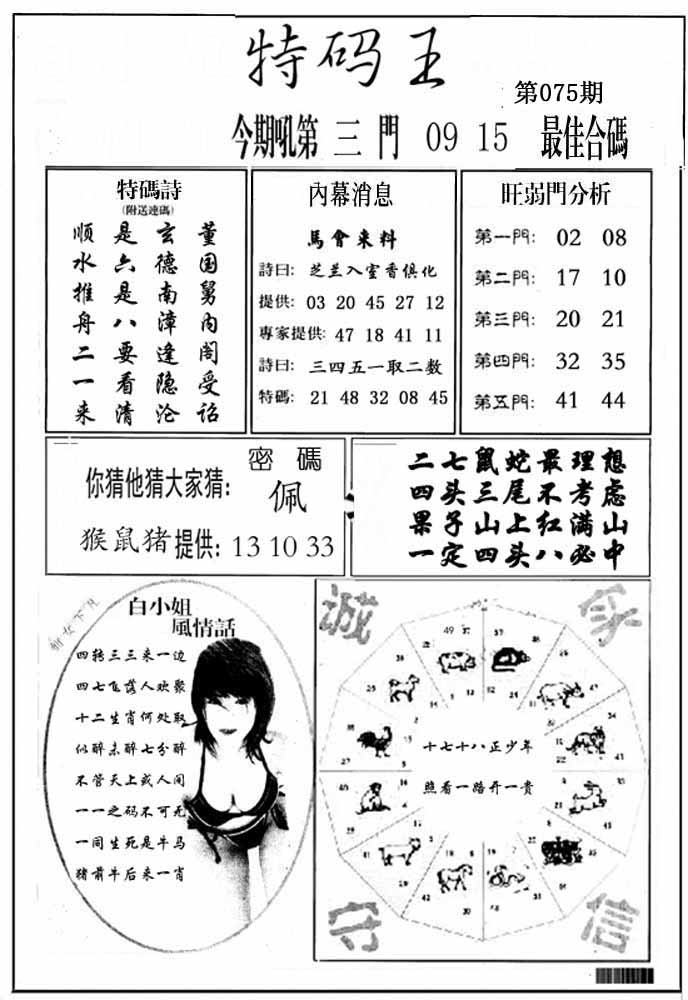 特码王
第075期
今期吼第 三 門 09 15 最佳合碼
特碼詩
(附送連碼)
顺 是 玄 董
水 六 德 国
推 是 南 舅
舟 八 漳 内
二 要 逢 阁
一 看 隐 受
来 清 沦 诏
內幕消息
馬會来料
詩曰: 芝兰入室香俱化
提供: 03 20 45 27 12
專家提供: 47 18 41 11
詩曰: 三四五一取二数
特碼: 21 48 32 08 45
旺弱門分析
第一門: 02 08
第二門: 17 10
第三門: 20 21
第四門: 32 35
第五門: 41 44
密碼
你猜他猜大家猜: 佩
猴鼠猪 提供: 13 10 33
二七鼠蛇最理想
四头三尾不考虑
果子山上红满山
一定四头八必中
白小姐
風情話
四转三三来一边
四七飞落人欢聚
十二生肖何处取
似醉未醉七分醉
不管天上或人间
一一之码不可无
一同生死是牛马
猪前牛后来一肖
诚
家
十七十八正少年
照看一路开一贵
守
信